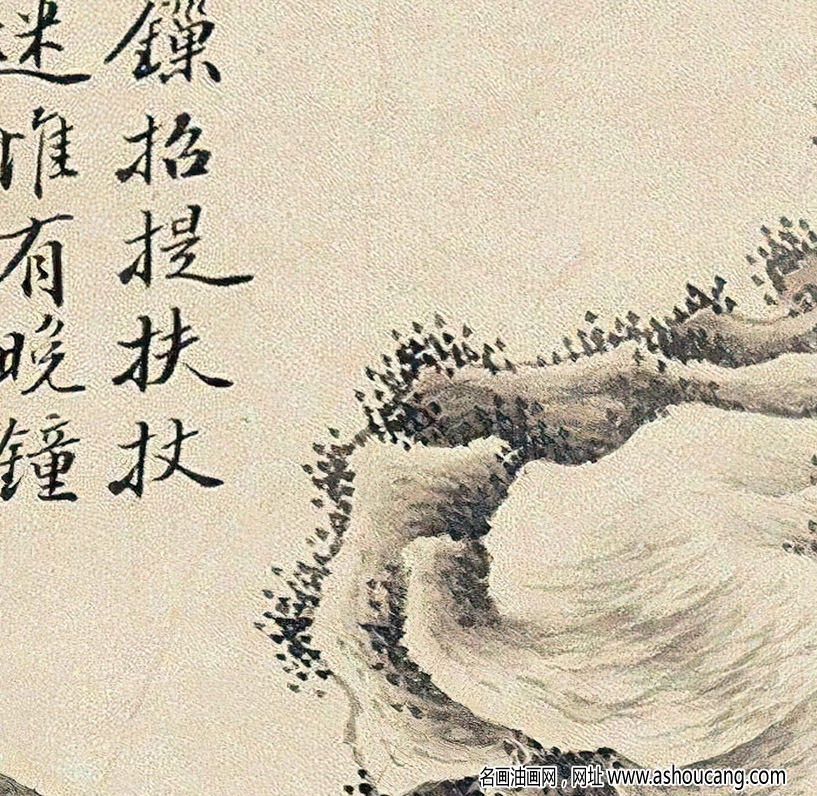 鏁招提扶杖
迷惟有晚鐘
名画油画网,网址 www.ashoucang.com